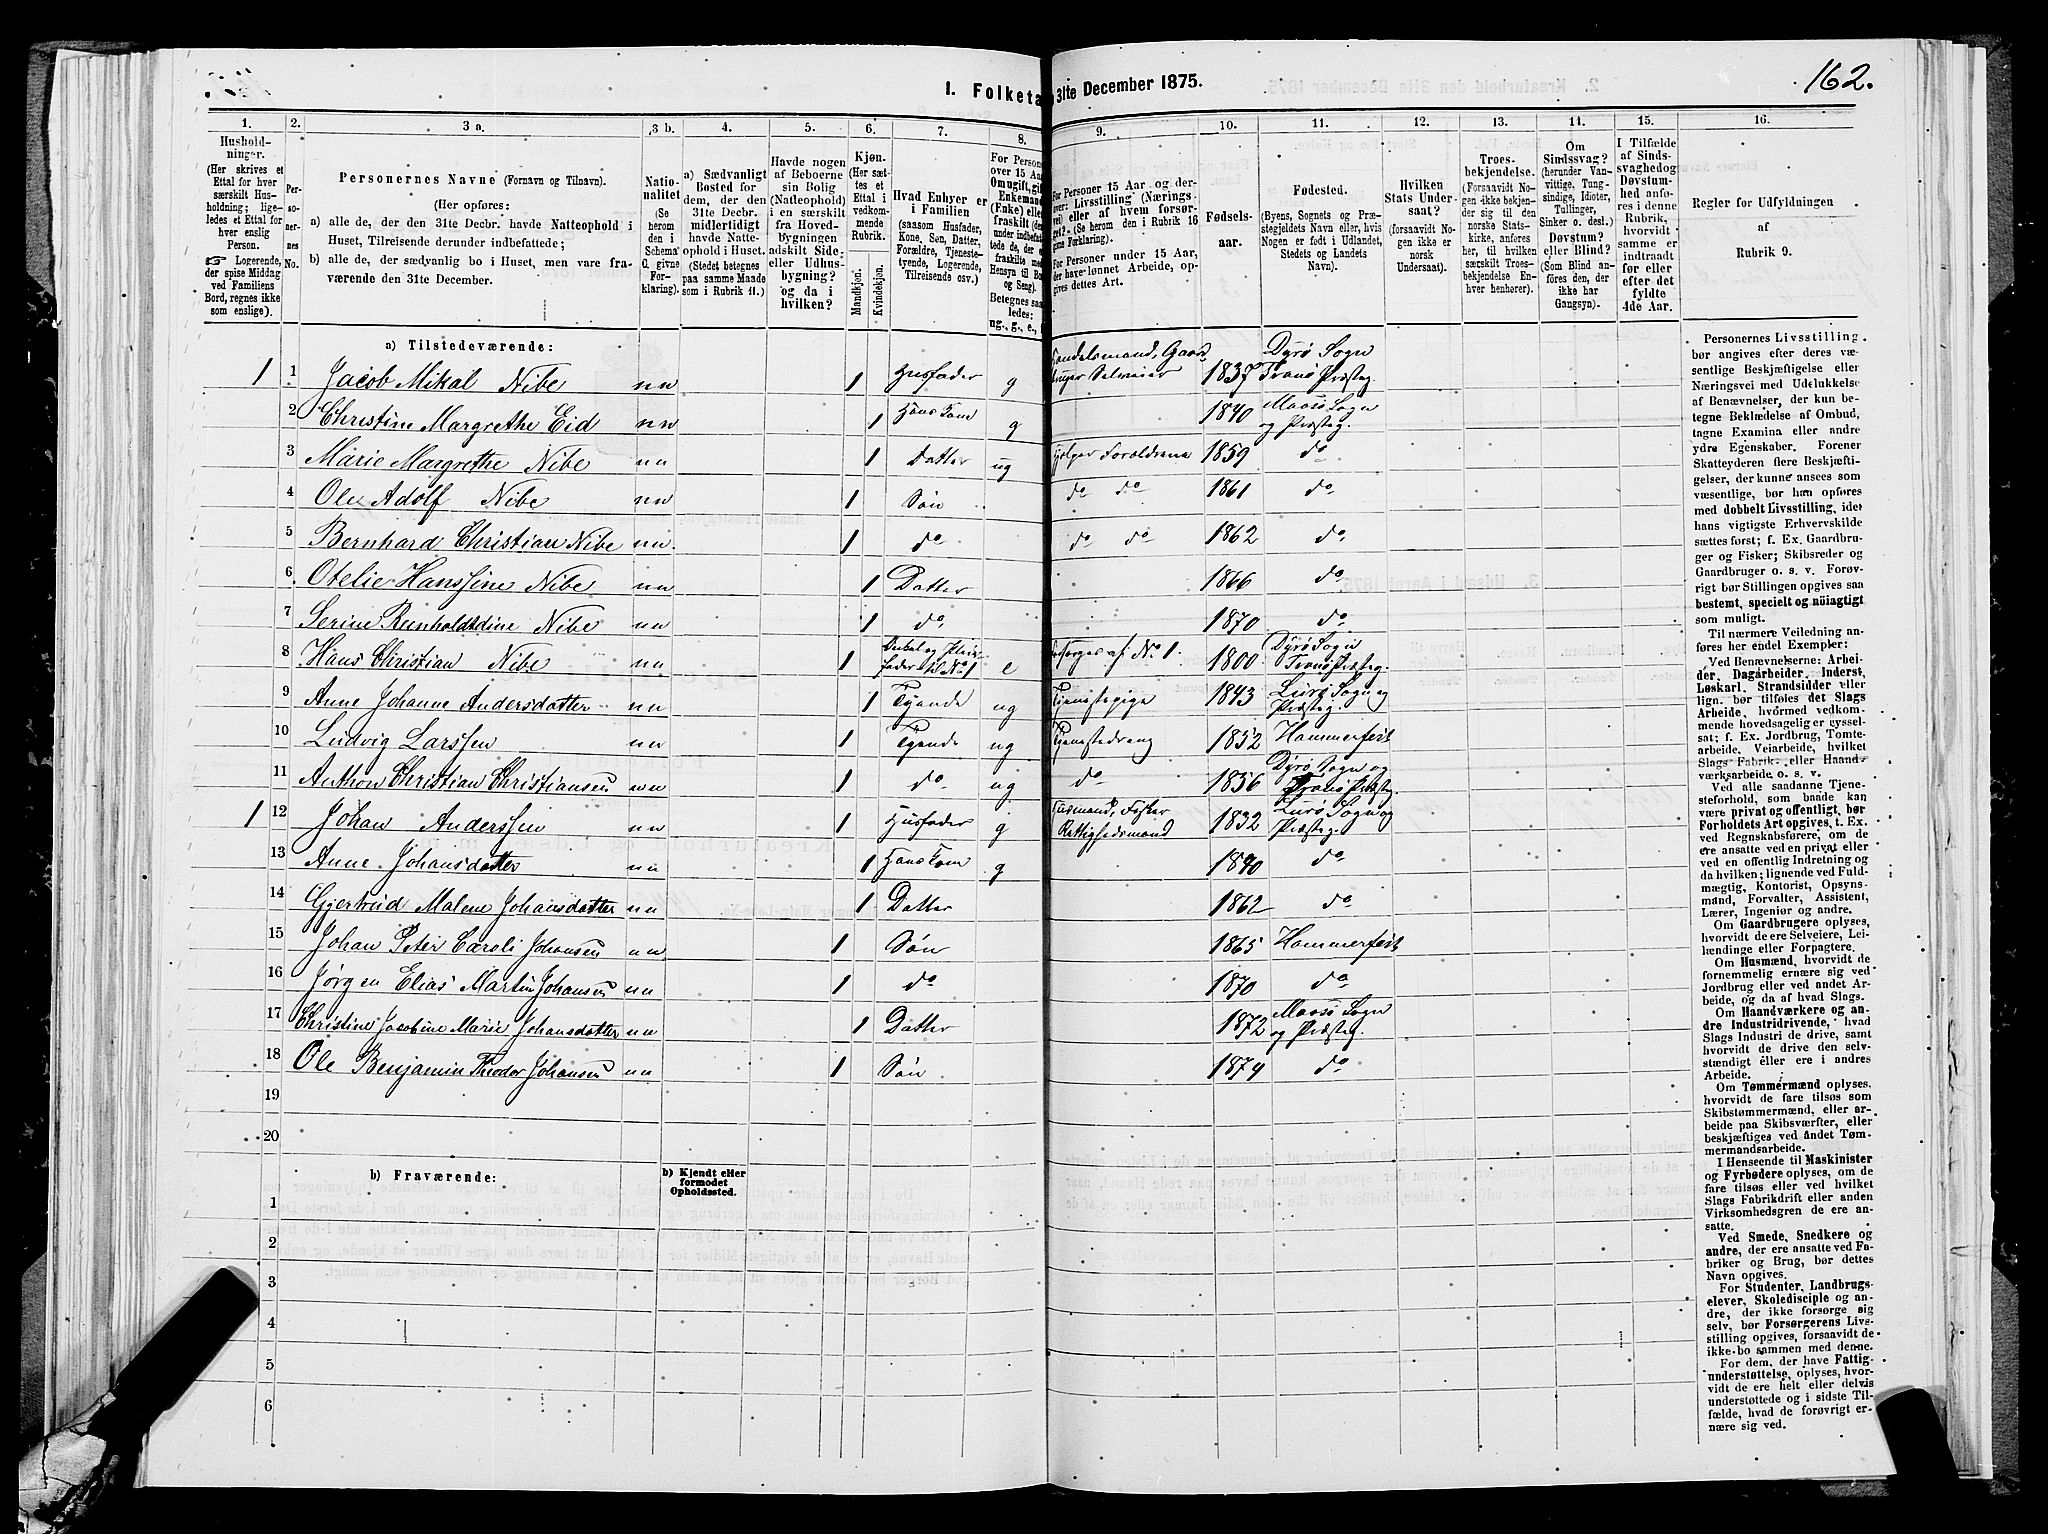 162.
I. Folketa 31te December 1875.
1.
Husholdninger.
(Her skrives et Ettal for hver særskilt Husholdning; ligeledes et Ettal for hver enslig Person.
☞ Logerende, der spise Middag ved Familiens Bord, regnes ikke som enslige).
2.
Personernes No.
3 a.
Personernes Navne (Fornavn og Tilnavn).
(Her opføres:
a) alle de, der den 31te Decbr. havde Natteophold i Huset, Tilreisende derunder indbefattede;
b) alle de, der sædvanlig bo i Huset, men vare fraværende den 31te December.
3 b.
Nationalitet
(Se herom den i Schema G. givne Forklaring).
4.
a) Sædvanligt Bosted for dem, der den 31te Decbr. midlertidigt havde Natteophold i Huset.
(Stedet betegnes paa samme Maade som i Rubrik 11.)
5.
Havde nogen af Beboerne sin Bolig (Natteophold) i en særskilt fra Hovedbygningen adskilt Side- eller Udhusbygning? og da i hvilken?
6.
Kjøn.
(Her sættes et Ettal i vedkommende Rubrik.
Mandkjøn.
Kvindekjøn.
7.
Hvad Enhver er i Familien
(saasom Husfader, Kone, Søn, Datter, Forældre, Tjenestetyende, Logerende, Tilreisende osv.)
8.
For Person over 15 Aar: Omugift, gift, Enkemand (Enke) eller fraskilt
Betegnes saaledes:
ug., g., e.,
9.
For Personer 15 Aar og derover: Livsstilling (Næringsvei) eller af hvem forsørget? (Se herom den i Rubrik 16 givne Forklaring).
For Personer under 15 Aar, der have lønnet Arbeide, opgives dettes Art.
10.
Fødselsaar.
11.
Fødested.
(Byens, Sognets og Præstegjeldets Navn eller, hvis Nogen er født i Udlandet, Stedets og Landets Navn).
12.
Hvilken Stats Undersaat?
(forsaavidt Nogen ikke er norsk Undersaat).
13.
Troesbekjendelse.
(Forsaavidt Nogen ikke bekjender sig til den norske Statskirke, anføres her, til hvilken særskilt Troesbekjendelse Enhver henhører).
14.
Om Sindssvag?
(herunder Vanvittige, Tungsindige, Idioter, Tullinger, Sinker o. desl.)
Døvstum? eller Blind?
(Som Blind anføres den, der ikke har Gangsyn).
15.
I Tilfælde af Sindssvaghed og Døvstumhed anføres i denne Rubrik, hvorvidt samme er indtraadt før eller efter det fyldte 4de Aar.
16.
Regler for Udfyldningen af Rubrik 9.
a) Tilstedeværende:
1 1 Jacob Mikal Nibe nn 1 Husfader g Handelsmand, Gaardbruger Selveier 1837 Dyrø Sogn Tranø Præsteg.
2 Christine Margrethe Eid nn 1 Hans Kone g 1840 Maasø Sogn og Præsteg.
3 Marie Margrethe Nibe nn 1 Datter ug Hjelper Forældrene 1859 do
4 Ole Adolf Nibe nn 1 Søn do do 1861 do
5 Bernhard Christian Nibe nn. 1 do do do 1862 do
6 Otelie Hanssine Nibe nn 1 Datter 1866 do
7 Serine Reinholddine Nibe nn 1 do 1870 do
8 Hans Christian Nibe nn 1 Onkel og Pleiefader til No 1 e Forsørges af No 1. 1800 Dyrø Sogn Tranø Præsteg.
9 Anne Johanne Andersdatter nn 1 Tyende ug Tjenestepige 1843 Lurø Sogn og Præsteg.
10 Ludvig Larssen nn 1 Tyende ug Tjenestedreng 1852 Hammerfest
11 Anthon Christian Christiansen nn 1 do ug do 1856 Dyrø Sogn og Tranø Præsteg.
1 12 Johan Anderssen nn 1 Husfader g Husmand, Fisker Rettighedsmand 1832 Lurø Sogn og Præsteg.
13 Anne Johansdatter nn 1 Hans Kone g 1840 do
14 Gjertrud Malene Johansdatter nn 1 Datter 1862 do
15 Johan Peter Caroli Johansen nn 1 Søn 1865 Hammerfest
16 Jørgen Elias Martin Johansen nn 1 do 1870 do
17 Christine Jacobine Marie Johansdatter nn 1 Datter 1872 Maasø Sogn og Præsteg.
18 Ole Benjamin Theodor Johansen nn 1 Søn 1874 do
19
20
b) Fraværende:
b) Kjendt eller formodet Opholdssted.
1
2
3
4
5
6
Personernes Livsstilling bør angives efter deres væsentlige Beskjæftigelse eller Næringsvei med Udelukkelse af Benævnelser, der kun betegne Beklædelse af Ombud, tagne Examina eller andre ydre Egenskaber. Forener Skatteyderen flere Beskjæftigelser, der kunne ansees som væsentlige, bør han opføres med dobbelt Livsstilling, idet hans vigtigste Erhvervskilde sættes først; f. Ex. Gaardbruger og Fisker; Skibsreder og Gaardbruger o. s. v. Forøvrigt bør Stillingen opgives saa bestemt, specielt og nøiagtigt som muligt.
Til nærmere Veiledning anføres her endel Exempler:
Ved Benævnelserne: Arbeider, Dagarbeider, Inderst, Løskarl, Strandsidder eller lign. bør tilføies det Slags Arbeide, hvormed vedkommende hovedsagelig er sysselsat; f. Ex. Jordbrug, Tomtearbeide, Veiarbeide, hvilket Slags Fabrik- eller Haandværksarbeide o. s. v.
Ved alle saadanne Tjenesteforhold, som baade kan være privat og offentligt, bør Forholdets Art opgives, t. Ex. ved Regnskabsførere, om de ere ansatte ved en privat eller ved en offentlig Indretning og da hvilken; lignende ved Fuldmægtig, Kontorist, Opsynsmand, Forvalter, Assistent, Lærer, Ingeniør og andre.
Om Gaardbrugere oplyses, hvorvidt de ere Selveiere, Leilændinge eller Forpagtere.
Om Husmænd, hvorvidt de fornemmelig ernære sig ved Jordbrug eller ved andet Arbeide, og da af hvad Slags.
Om Haandværkere og andre Industridrivende, hvad Slags Industri de drive, samt hvorvidt de drive den selvstændigt eller ere i andres Arbeide.
Om Tømmermænd oplyses, hvorvidt de fare tilsøs som Skibstømmermænd, eller arbeide paa Skibsværfter, eller beskjæftiges ved andet Tømmermandsarbeide.
I Henseende til Maskinister og Fyrbødere oplyses, om de fare tilsøs eller ved hvilket Slags Fabrikdrift eller anden Virksomhedsgren de ere ansatte.
Ved Smede, Snedkere og andre, der ere ansatte ved Fabriker og Brug, bør dettes Navn opgives.
For Studenter, Landbrugselever, Skoledisciple og andre, der ikke forsørge sig selv, bør Forsørgerens Livsstilling opgives, forsaavidt de ikke bo sammen med denne.
For dem, der have Fattigunderstøttelse, oplyses, hvorvidt de ere helt eller delvis understøttede og i sidste Tilfælde, hvad de forøvrigt ernære sig ved.